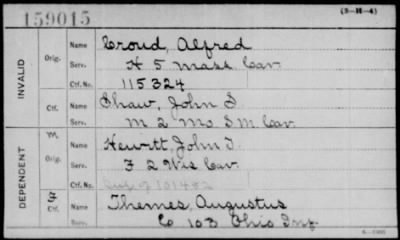 159015
(3-H-4)
INVALID
Orig. Name Croud, Alfred
Serv. H 5 Mass Cav.
Ctf. No. 115324
Ctf. Name Shaw, John S
Serv. M 2 Mo S M Cav
DEPENDENT
M Orig. Name Hewitt, John T.
Serv. F 2 Wis Cav.
Ctf. No.
F Ctf. Name Themes, Augustus
Co 103 Ohio Inf